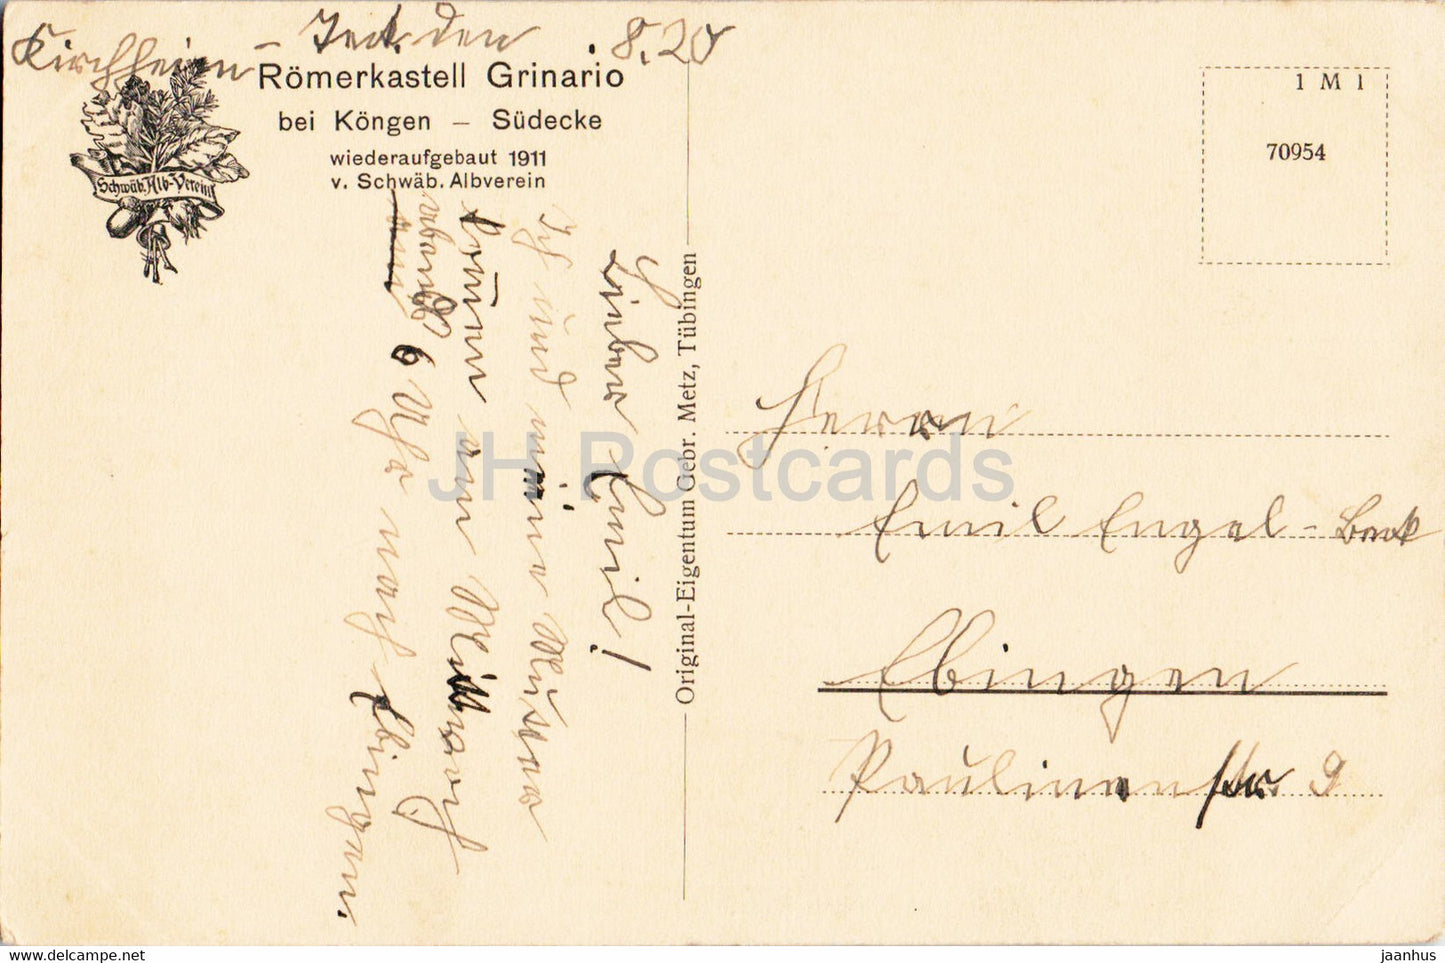 Kirchheim - Teck den 8.20
Römerkastell Grinario
bei Köngen – Südecke
wiederaufgebaut 1911
v. Schwäb. Albverein
Schwäb. Alb-Verein
1 M 1
70954
Lieber Emil!
Ich und meine Mutter
kommen am Mittwoch
abend
6 Uhr nach Ebingen.
Original-Eigentum Gebr. Metz, Tübingen
Herrn
Emil Engel - Beck
Ebingen
Paulinenstr. 9
JH Postcards
www.hippostcard.com
jaanhus